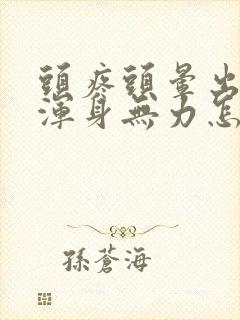 頭疼頭暈出
渾身無力怎
孫蒼海